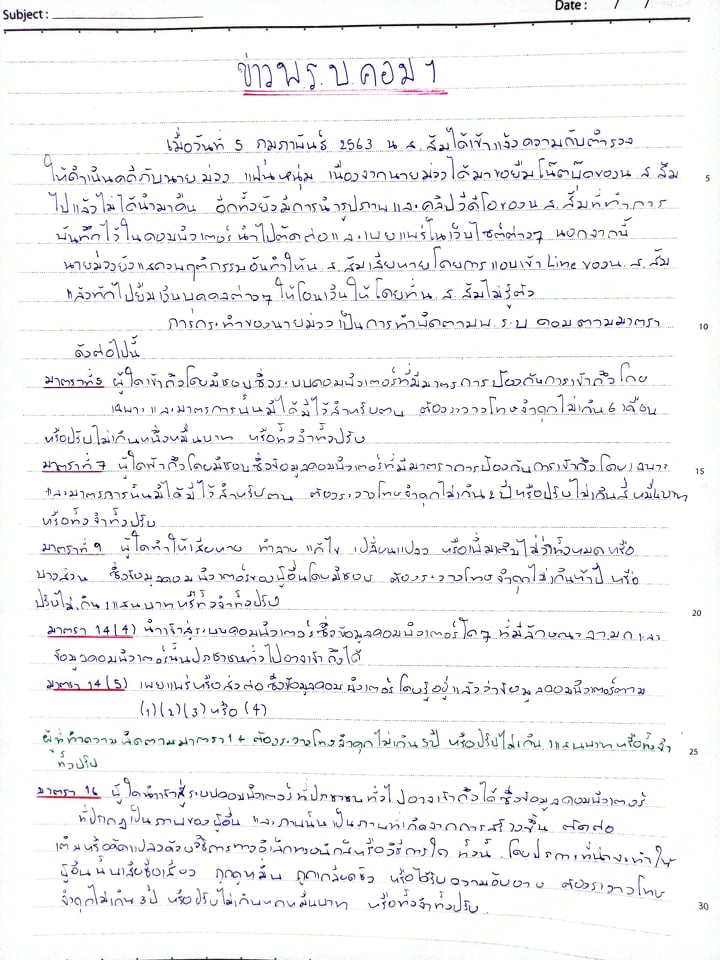 Subject :
Date : / /
ข่าว พ.ร.บ. คอม ฯ
เมื่อวันที่ 5 กุมภาพันธ์ 2563 น.ส.ส้มได้เข้าแจ้งความกับตำรวจ
ให้ดำเนินคดีกับนายม่วง แฟนหนุ่ม เนื่องจากนายม่วงได้มาขอยืมโน๊ตบุ๊คของน.ส.ส้ม
5
ไปแล้วไม่ได้นำมาคืน อีกทั้งยังมีการนำรูปภาพและคลิปวีดีโอของน.ส.ส้มที่ทำการ
บันทึกไว้ในคอมพิวเตอร์นำไปตัดต่อและเผยแพร่ในเว็บไซต์ต่างๆ นอกจากนี้
นายม่วงยังแสดงพฤติกรรมอันทำให้น.ส.ส้มเสียหายโดยการแอบเข้า Line ของน.ส.ส้ม
แล้วทักไปยืมเงินบุคคลต่างๆ ให้โอนเงินให้โดยที่น.ส.ส้มไม่รู้ตัว
การกระทำของนายม่วงเป็นการทำผิดตามพ.ร.บ คอมตามมาตรา
10
ดังต่อไปนี้
มาตราที่5 ผู้ใดเข้าถึงโดยมิชอบซึ่งระบบคอมพิวเตอร์ที่มีมาตรการป้องกันการเข้าถึงโดย
เฉพาะและมาตรการนั้นมิได้มีไว้สำหรับตน ต้องระวางโทษจำคุกไม่เกิน 6 เดือน
หรือปรับไม่เกินหนึ่งหมื่นบาท หรือทั้งจำทั้งปรับ
มาตราที่7 ผู้ใดเข้าถึงโดยมิชอบซึ่งข้อมูลคอมพิวเตอร์ที่มีมาตราการป้องกันการเข้าถึงโดยเฉพาะ
15
และมาตรการนั้นมิได้มีไว้สำหรับตน ต้องระวางโทษจำคุกไม่เกิน 2 ปี หรือปรับไม่เกินสี่หมื่นบาท
หรือทั้งจำทั้งปรับ
มาตราที่ 9 ผู้ใดทำให้เสียหาย ทำลาย แก้ไข เปลี่ยนแปลง หรือเพิ่มเติมไม่ว่าทั้งหมดหรือ
บางส่วน ซึ่งข้อมูลคอมพิวเตอร์ของผู้อื่นโดยมิชอบ ต้องระวางโทษจำคุกไม่เกินห้าปี หรือ
ปรับไม่เกิน 1 แสนบาท หรือทั้งจำทั้งปรับ
20
มาตรา 14(4) นำเข้าสู่ระบบคอมพิวเตอร์ซึ่งข้อมูลคอมพิวเตอร์ใดๆ ที่มีลักษณะลามกและ
ข้อมูลคอมพิวเตอร์นั้นประชาชนทั่วไปอาจเข้าถึงได้
มาตรา 14(5) เผยแพร่หรือส่งต่อซึ่งข้อมูลคอมพิวเตอร์โดยรู้อยู่แล้วว่าข้อมูลคอมพิวเตอร์ตาม
(1)(2)(3) หรือ (4)
ผู้ที่ทำความผิดตามมาตรา 14 ต้องระวางโทษจำคุกไม่เกิน 5 ปี หรือปรับไม่เกิน 1 แสนบาท หรือทั้งจำ
25
ทั้งปรับ
มาตรา 16 ผู้ใดนำเข้าสู่ระบบคอมพิวเตอร์ที่ประชาชนทั่วไปอาจเข้าถึงได้ซึ่งข้อมูลคอมพิวเตอร์
ที่ปรากฏเป็นภาพของผู้อื่น และภาพนั้นเป็นภาพที่เกิดจากการสร้างขึ้น ตัดต่อ
เติมหรือดัดแปลงด้วยวิธีการทางอิเล็กทรอนิกส์หรือวิธีการใด ทั้งนี้ โดยประการที่น่าจะทำให้
ผู้อื่นนั้นเสียชื่อเสียง ถูกดูหมิ่น ถูกเกลียดชัง หรือได้รับความอับอาย ต้องระวางโทษ
จำคุกไม่เกิน 3 ปี หรือปรับไม่เกินหกหมื่นบาท หรือทั้งจำทั้งปรับ
30